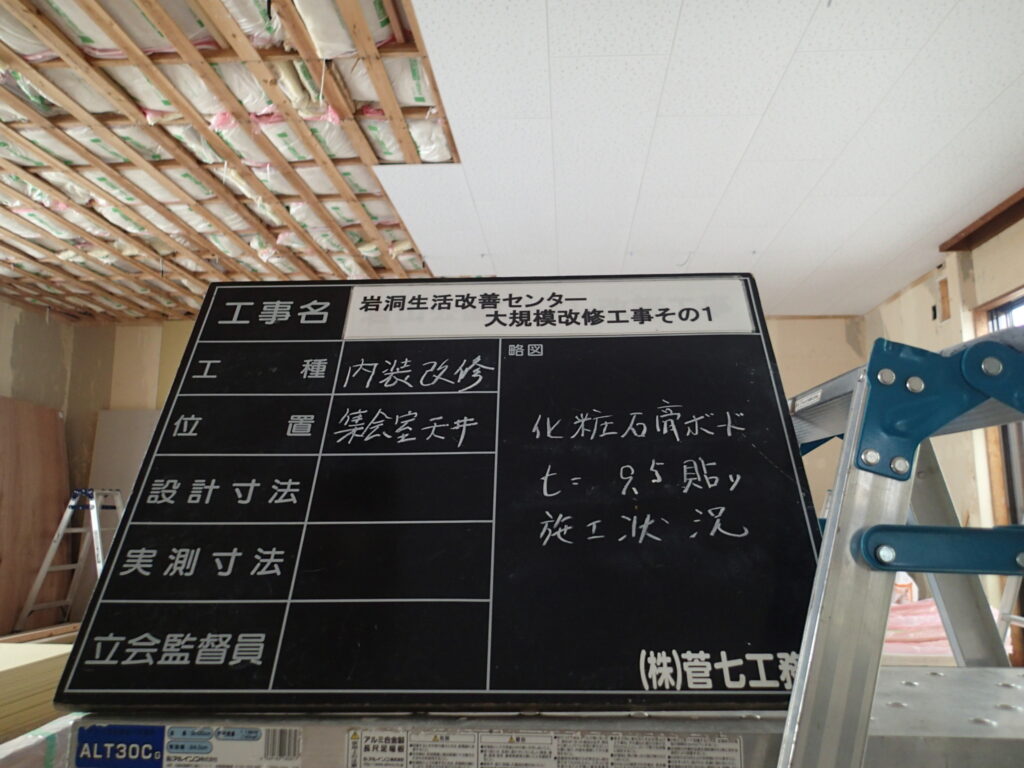 工事名
岩洞生活改善センター
大規模改修工事その1
工種
内装改修
位置
集会室天井
設計寸法
実測寸法
立会監督員
略図
化粧石膏ボード
t= 9.5 貼り
施工状況
(株)菅七工務
ALT30C
アルミ合金製
長尺足場板